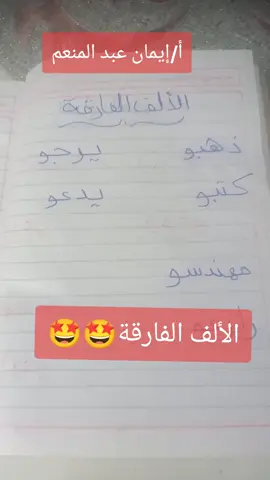 أ/إيمان عبد المنعم
الألف الفارقة
ذهبو يرجو
كتبو يدعو
مهندسو
الألف الفارقة🤩🤩